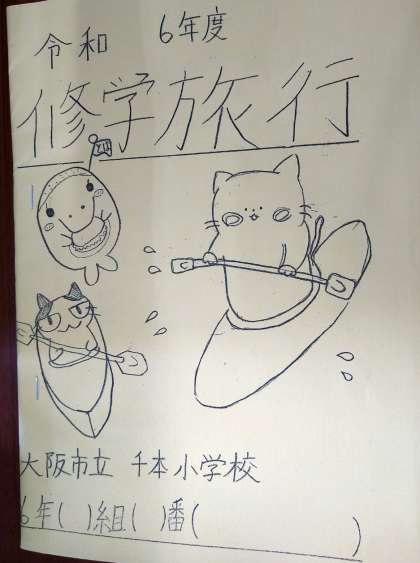 令和 6年度
修学旅行
大阪市立 千本小学校
6年( )組( )番( )